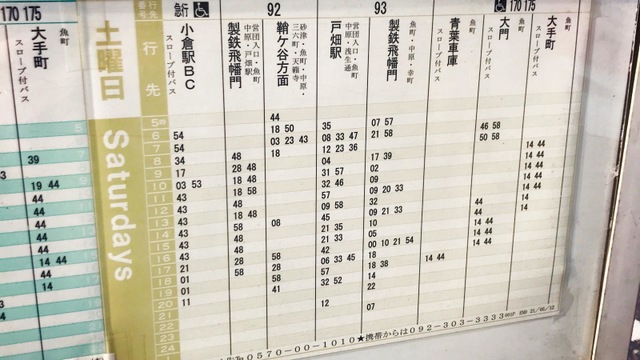 170 175
大手町
魚町
スロープ付バス
39
19 44
44
44
44
16 44
14 44
44
44
土曜日
Saturdays
行先
番号
行先
急行
小倉駅BC
スロープ付バス
製鉄飛幡門
営団入口・魚町
中原・戸畑駅
92
鞘ケ谷方面
砂津・魚町・中原・
三六町・天籟寺
戸畑駅
営団入口・魚町
中原・浅生通
93
製鉄飛幡門
魚町・中原・幸町
青葉車庫
魚町
スロープ付バス
170 175
大門
魚町
スロープ付バス
大手町
魚町
スロープ付バス
5時 44 07 57
6 54 18 50 35 21 58 46 58
7 54 03 23 43 08 33 47 50 58 14 44
8 34 48 18 12 23 36 17 39 14 44
9 17 28 48 02 14 44
10 03 53 18 48 31 57 09 14 44
11 43 18 58 32 46 09 20 33 14 44
12 43 48 57 09 44 14
13 43 18 48 09 58 09 21 33 44
14 43 58 08 45 10 14 44
15 43 48 21 35 05 14 44
16 43 58 21 33 00 10 21 54
17 21 58 42 18 14 44
18 01 28 06 33 45 18 38
19 01 41 58 14
20 11 32 52 22
21
22 12 07
23
24
0570-00-1010★携帯からは092-303-3333
21/06/12